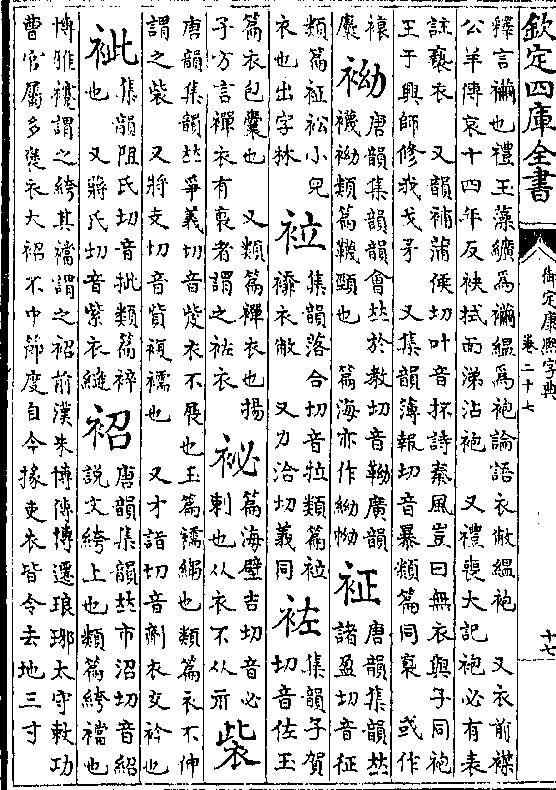 欽定四庫全書
御定康熙字典
卷二十七
十七
釋言襺也禮玉藻纊為襺緼為袍論語衣敝緼袍 又衣前襟
公羊傳哀十四年反袂拭面涕沾袍 又禮喪大記袍必有表
註褻衣 又韻補蒲侯切叶音抔詩秦風豈曰無衣與子同袍
王于興師修我戈矛 又集韻薄報切音暴類篇同袌 或作
袎
唐韻集韻韻會𠀤於教切音靿廣韻
襪袎類篇韈頸也 篇海亦作䋂
唐韻集韻𠀤
諸盈切音征
類篇 衳小兒
衣也出字林
集韻落合切音拉類篇
衣敝 又力洽切義同
袏
集韻子賀
切音佐玉
篇衣包囊也 又類篇襌衣也揚
子方言襌衣有袌者謂之袏衣
袐
篇海壁吉切音必
刺也从衣不从示
唐韻集韻𠀤爭義切音 衣不展也玉篇襦 也類篇衣不伸
謂之 又將支切音貲複襦也 又才詣切音劑衣交衿也
集韻阻氏切音批類篇
也 又蔣氏切音紫衣縫
袑
唐韻集韻𠀤市沼切音紹
說文絝上也類篇絝襠也
博雅 謂之絝其襠謂之袑前漢朱博傳博遷琅琊太守敕功
曹官屬多襃衣大袑不中節度自今掾吏衣皆令去地三寸